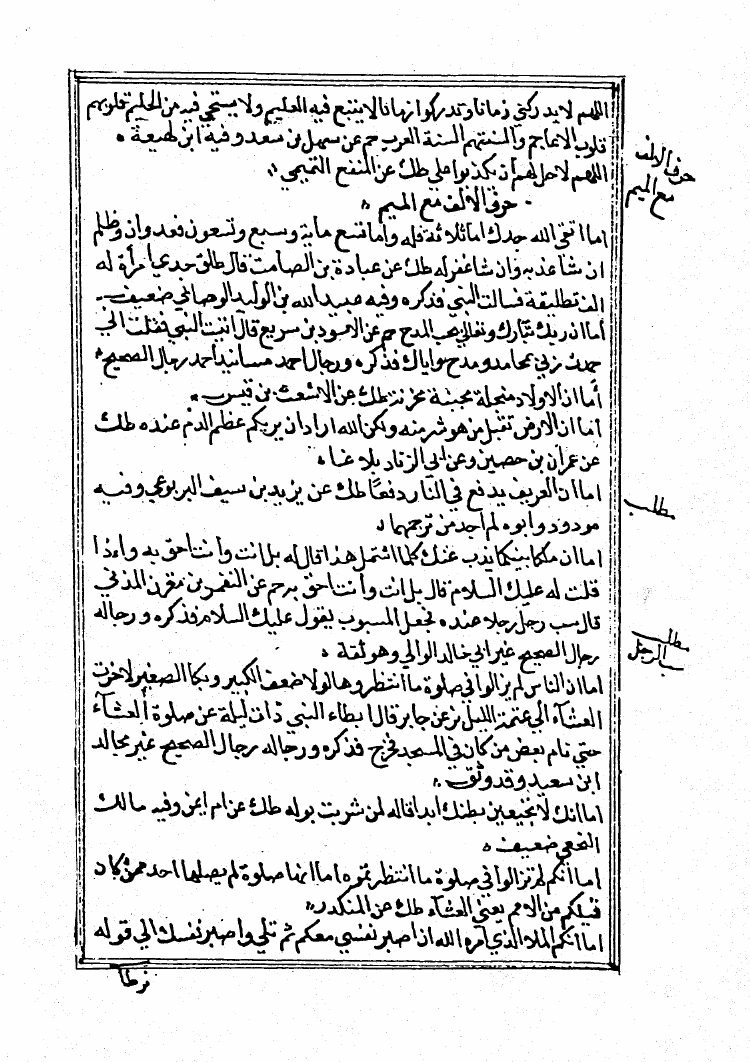 اللهم لا يدركني زمانا وتدركوا زمانا لا يتبع فيه العليم ولا يستحي فيه من الحليم قلوبهم
قلوب الاعاجم والسنتهم السنة العرب حم عن سهل بن سعد وفيه ابن لهيعة
اللهم لا احل لهم أن يكذبوا علي طك عن المنقع التميمي
حرف الالف مع الميم
حرف الالف
مع الميم
اما اتقى الله جدك اما ثلاثة فله واما تسع ماية وسبع وتسعون فعدوان وظلم
ان شا عذبه وان شا غفر له طك عن عبادة بن الصامت قال طلق جدي امرأة له
الف تطليقة فسالت النبي فذكره وفيه عبيد الله بن الوليد الوصافي ضعيف
أما ان ربك تبارك وتعالى يحب المدح حم عن الاسود بن سريع قال اتيت النبي فقلت اني
حمدت ربي بمحامد ومدح واياك فذكره ورجال احمد مسانيد احمد رجال الصحيح
أما ان الاولاد مبخلة مجبنة محزنة طك عن الاشعث بن قيس
اما ان الارض تقبل من هو شر منه ولكن الله اراد ان يريكم عظم الدم عنده طك
عن عمران بن حصين وعن ابي الزناد بلاغا
اما ان العريف يدفع في النار دفعا طك عن يزيد بن سيف اليربوعي وفيه
مطلب
مودود وابوه لم اجد من ترجمهما
اما ان ملكا بينكما يذب عنك كلما اشتمل هذا قال له بل انت وأنت احق به واذا
قلت له عليك السلام قال بل انت وأنت احق به حم عن النعمن بن مقرن المزني
قال سب رجل رجلا عنده فجعل المسبوب يقول عليك السلام فذكره ورجاله
مطلب
سب الرجل
رجال الصحيح غير ابي خالد الوالبي وهو ثقة
اما ان الناس لم يزالوا في صلوة ما انتظروها لولا ضعف الكبير وبكا الصغير لاخرت
العشآء الي عتمة الليل بز عن جابر قال ابطاء النبي ذات ليلة عن صلوة العشآء
حتي نام بعض من كان في المسجد فخرج فذكره ورجاله رجال الصحيح غير مجالد
ابن سعيد وقد وثق
اما انك لا يجيعين بطنك ابدا قاله لمن شربت بوله طك عن ام ايمن وفيه مالك
النخعي ضعيف
اما أنكم لم تزالوا في صلوة ما انتظرتموه اما انها صلوة لم يصلها احد ممن كان
قبلكم من الامم يعني العشآء طك عن المنكدر
اما أنكم الملا الذي امره الله ان اصبر نفسي معكم ثم تلي واصبر نفسك الي قوله